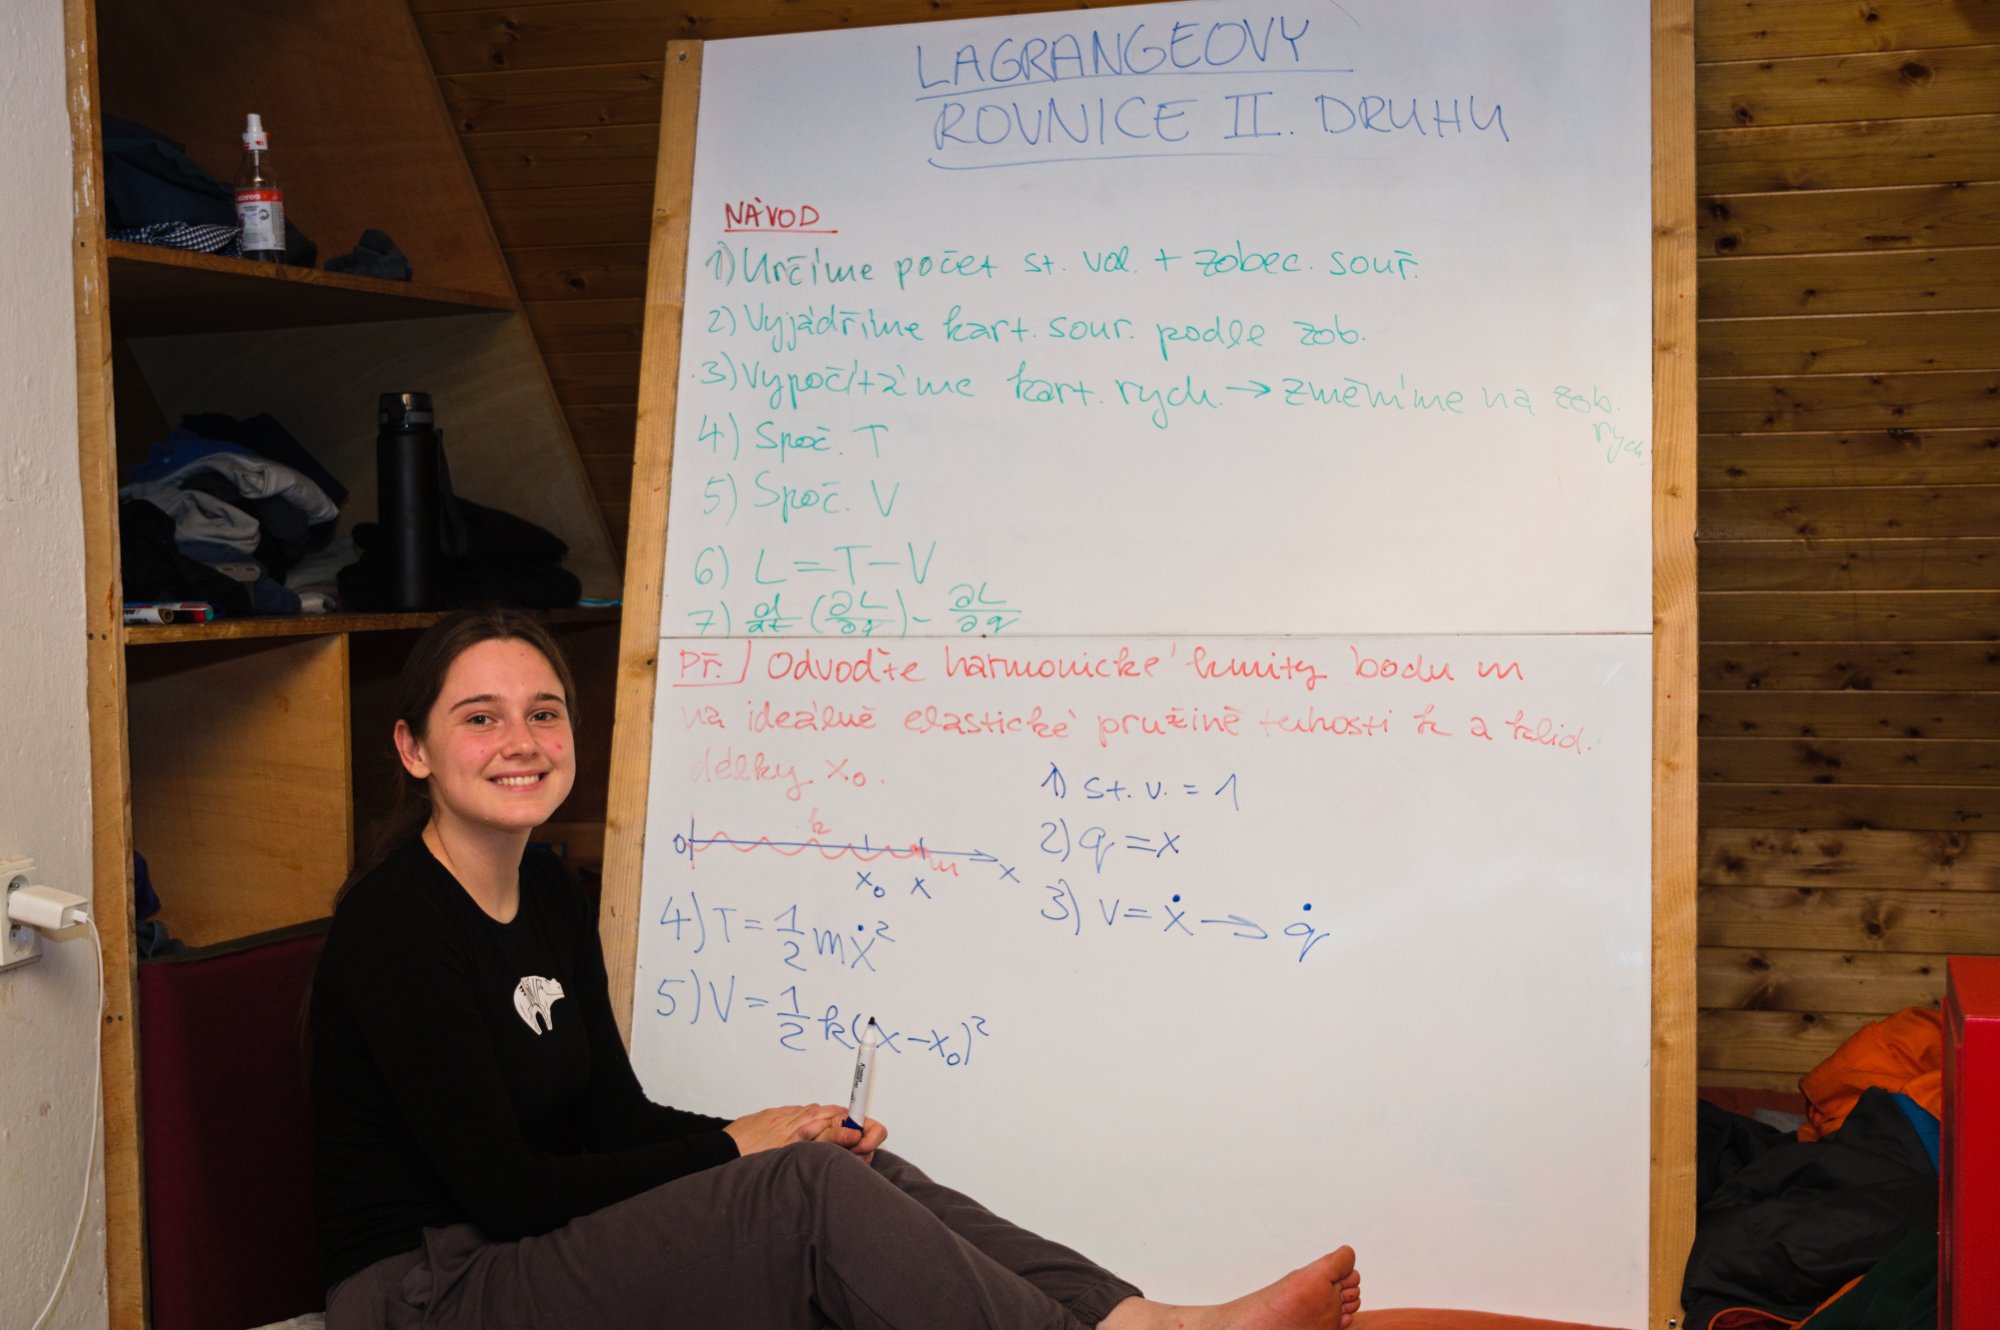 LAGRANGEOVY
ROVNICE II. DRUHU
NÁVOD
1) Určíme počet st. vol. + zobec. souř.
2) Vyjádříme kart. sour. podle zob.
3) Vypočítáme kart. rych. → změníme na zob.
rych.
4) Spoč. T
5) Spoč. V
6) L = T - V
7) d/dt (∂L/∂q) - ∂L/∂q
Př. Odvoďte harmonické kmity bodu m
na ideálně elastické pružině tuhosti k a klid.
délky x₀.
k
0 x₀ x m x
1) st. v. = 1
2) q = x
3) v = ẋ → q̇
4) T = 1/2 mẋ²
5) V = 1/2 k(x - x₀)²
kores